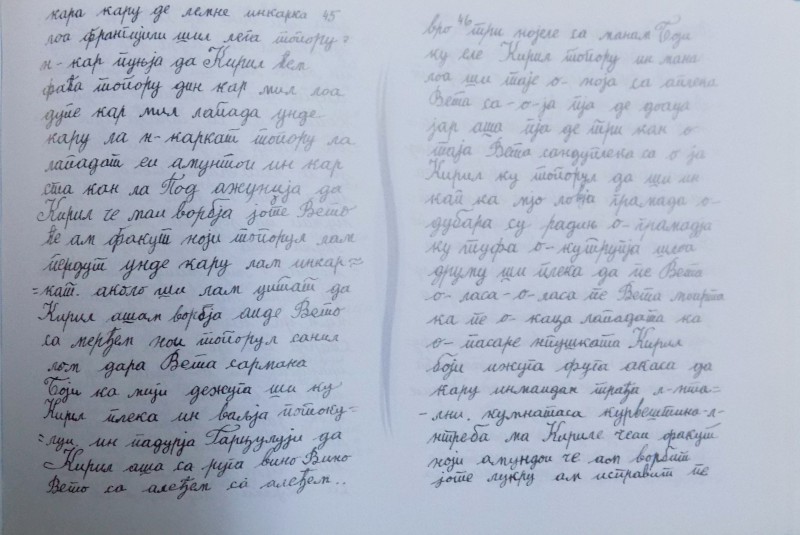 кара кару де лемне инкарка 45
лоа франтијили шил лега топору=
н-кар пуња да Кирил вем
фаћа топору дин кар мил лоа
дупе кар мил лапада унде
кару ла н-каркат топору ла
лападат еи амунтои ин кар
ста кан ла Под ажунија да
Кирил че маи ворбја јоте Вето
ће ам факут ноји топорул лам
пердут унде кару лам инкар=
=кат. аколо ши лам уитат да
Кирил ашам ворбја аиде Вето
са мерђем нои топорул санил
лом дара Вета сармана
Боји ка мији дежуга ши ку
Кирил плека ин ваљја потоку=
=луи. ин падурја Гарцулуји да
Кирил аша са руга вино Вино
Вето са алеђем са алеђем..
вро 46 три појеле са манам Боји
ку еле Кирил топору ин мана
лоа ши таје о- ноја са аплека
Вета са-о-ја пја де доауа
јар аша пја де три кан о
таја Вета сандуплека са о ја
Кирил ку топорул да ши ин
кап ка мјо ловја грамада о-
дубара су радин о-грамадја
ку туфа о-кутрупја шлоа
друму ши плека да пе Вета
о-ласа-о-ласа пе Вета моарта
ка пе о- каца лападата ка
о- пасаре мпушката Кирил
боји ижуга фуга акаса да
кару инмаидан трађа л-нта=
-лни. кумнатаса курвештина-л-
нтреба ма Кириле чеаи факут
ноји амундои че аом ворбит
јоте лукру ам исправит пе